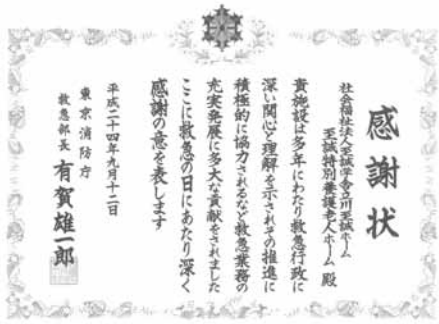 感謝状
社会福祉法人至誠学舎立川至誠ホーム
至誠特別養護老人ホーム 殿
貴施設は多年にわたり救急行政に
深い関心と理解を示されその推進に
積極的に協力されるなど救急業務の
充実発展に多大な貢献をされました
ここに救急の日にあたり深く
感謝の意を表します
平成二十四年九月十二日
東京消防庁
救急部長 有賀雄一郎